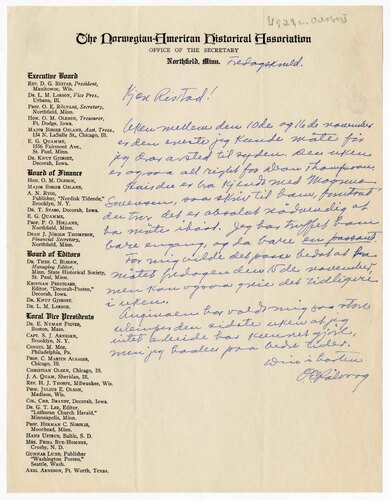 [1929c. October]
The Norwegian-American Historical Association
OFFICE OF THE SECRETARY
Northfield, Minn.
Fredagskveld.
Executive Board
REV. D. G. RISTAD, President,
Manitowoc, Wis.
DR. L. M. LARSON, Vice Pres.,
Urbana, Ill.
PROF. O. E. RÖLVAAG, Secretary,
Northfield, Minn.
HON. O. M. OLESON, Treasurer,
Ft. Dodge, Iowa.
MAJOR BIRGER OSLAND, Asst. Treas.,
134 N. LaSalle St., Chicago, Ill.
E. G. QUAMME,
St. Paul, Minn.
DR. KNUT GJERSET,
Decorah, Iowa.
Board of Finance
HON. O. M. OLESON,
MAJOR BIRGER OSLAND,
A. N. RYGG,
Publisher, "Nordisk Tidende,"
Brooklyn, N. Y.
DR. T. STABO, Decorah, Iowa.
E. G. QUAMME
PROF. P. O. HOLLAND,
Northfield, Minn.
DEAN J. JÖRGEN THOMPSON,
Financial Secretary,
Northfield, Minn.
Board of Editors
DR. THEO. C. BLEGEN,
Managing Editor,
Minn. State Historical Society,
St. Paul, Minn.
KRISTIAN PRESTGARD,
Editor, "Decorah-Posten,"
Decorah, Iowa.
DR. KNUT GJERSET,
Decorah, Iowa.
Local Vice Presidents
DR. E. NYMAN FIGVED,
Boston, Mass.
CAPT. S. J. ARNESEN,
Brooklyn, N. Y.
CONSUL M. MOE,
Philadelphia, Pa.
PROF. C. MARTIN ALSAGER,
Chicago, Ill.
CHRISTIAN OLSEN, Chicago, Ill.
J. A. QUAM, Sheridan, Ill.
REV. H. J. THORPE, Milwaukee, Wis.
PROF. JULIUS E. OLSON,
Madison, Wis.
COL. CHR. BRANDT, Decorah, Iowa.
DR. G. T. LEE, Editor,
"Lutheran Church Herald,"
Minneapolis, Minn.
PROF. HERMAN C. NORDLIE,
Moorhead, Minn.
HANS USTRUD, Baltic, S. D.
MRS. FRIDA BUE-HOMNES,
Crosby, N. D.
GUNNAR LUND, Publisher
"Washington Posten,"
Seattle, Wash.
AXEL ARNESON, Ft. Worth, Texas.
Kjære Ristad!
Uken mellem den 10de og 16de november
er den eneste jeg kunde møte før
jeg drar avsted til syden. Den uken
er ogsaa all right for Dean Thompson.
Kan du er bra kjendt med Magnus
Swenson, saa skriv til ham, forutsat
du tror det er absolut nødvendig at
ha møte i høst. Jeg har truffet ham
bare engang, og da bare en passant.
For mig vilde det passe bedst at ha
møtet fredagen den 15de november,
men kan ogsaa greie det tidligere
i uken.
Anginaen har voldt mig saa store
ulemper den sidste uken at jeg
intet arbeide har kunnet gjøre,
men jeg haaber paa bedre tider.
Din i hast
O E Rölvaag